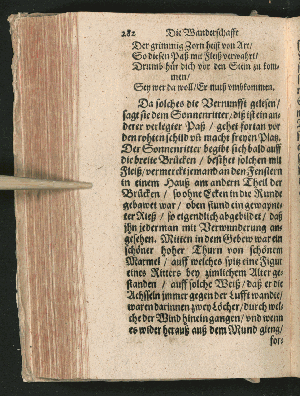 282 Die Wanderschafft
Der grimmig Zorn heist von Art/
So diesen Paß mit Fleiß verwahrt/
Drumb hüt dich vor den Stein zu kom-
men/
Sey wer da woll/ Er muß vmbkommen.
Da solches die Vernunfft gelesen/
sagt sie dem Sonnenritter/ diß ist ein an-
derer verlegter Paß/ gehet fortan vor
den rohten schild vñ machz freyen Platz.
Der Sonnenritter begibt sich bald auff
die breite Brücken/ besihet solchen mit
Fleiß/ vermerckt jemand an den Fenstern
in einem Hauß am andern Theil der
Brücken/ so ohne Ecken in die Runde
gebawet war/ oben stund ein gewapne-
ter Rieß/ so eigendlich abgebildet/ daß
jhn jederman mit Verwunderung an-
gesehen. Mitten in dem Gebew war ein
schöner hoher Thurn von schönem
Marmel/ auff welches spitz eine Figur
eines Ritters bey zimlichem Alter ge-
standen/ auff solche Weiß/ daß er die
Achseln immer gegen der Lufft wandte/
waren darinnen zwey Löcher/ durch wel-
che der Wind hinein gangen/ vnd wenn
es wider herauß auß dem Mund gieng/
for-